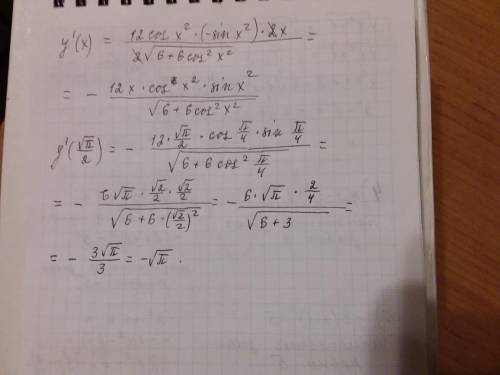 y'(x) = \frac{12 cos x² · (-sin x²) · 2x}{2√(6+6cos² x²)} =
= - \frac{12x · cos x² · sin x²}{√(6+6cos² x²)}
y'(\frac{√π}{2}) = - \frac{12 · \frac{√π}{2} · cos \frac{π}{4} · sin \frac{π}{4}}{√(6+6cos² \frac{π}{4})} =
= - \frac{6√π · \frac{√2}{2} · \frac{√2}{2}}{√(6+6·(\frac{√2}{2})²)} = - \frac{6 · √π · \frac{2}{4}}{√(6+3)} =
= - \frac{3√π}{3} = -√π .